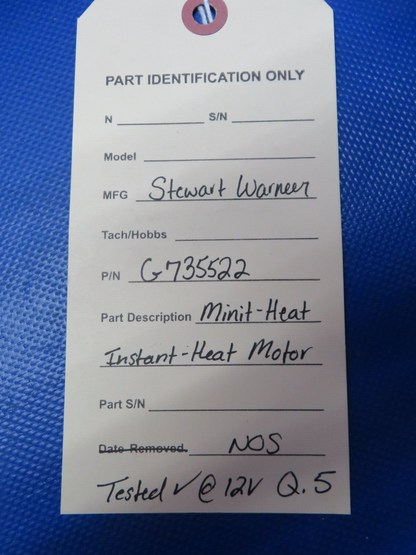 PART IDENTIFICATION ONLY
N ____________ S/N ____________
Model ____________
MFG Stewart Warneer
Tach/Hobbs ____________
P/N G735522
Part Description Minit-Heat
Instant-Heat Motor
Part S/N ____________
Date Removed. NOS
Tested ✓ @ 12V Q.5